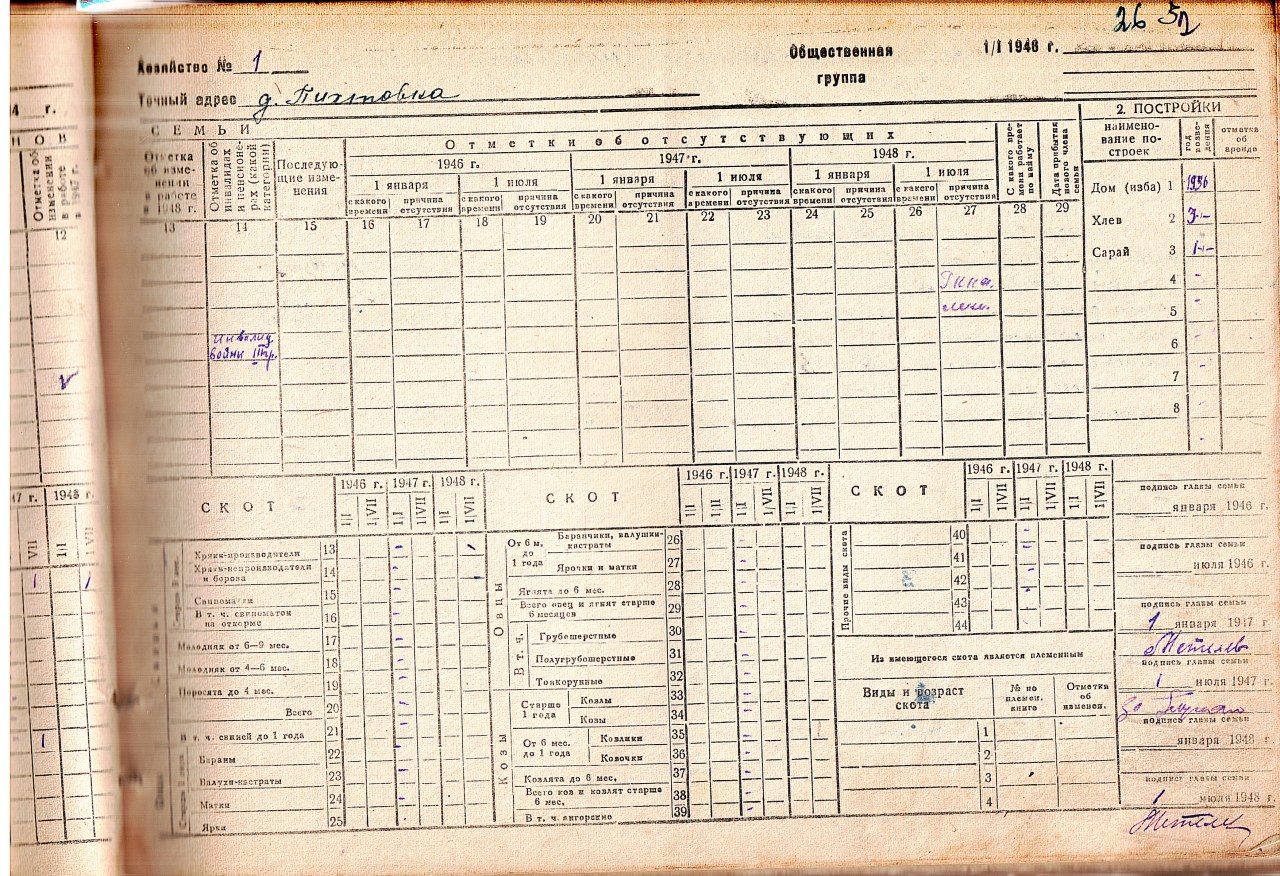 26
Хозяйство № 1
Общественная группа
1/I 1946 г.
Точный адрес д. Пихтовка
4 г.
НОВ
Отметка об изменении в работе в 1947 г.
12
СЕМЬИ
Отметка об изменении в работе в 1948 г.
Отметка об инвалидах и пенсионерах (какой категории)
Последующие изменения
Отметки об отсутствующих
1946 г.
1947 г.
1948 г.
1 января
1 июля
1 января
1 июля
1 января
1 июля
с какого времени
причина отсутствия
с какого времени
причина отсутствия
с какого времени
причина отсутствия
с какого времени
причина отсутствия
с какого времени
причина отсутствия
с какого времени
причина отсутствия
С какого времени работает по найму
Дата прибытия нового члена семьи
13 14 15 16 17 18 19 20 21 22 23 24 25 26 27 28 29
инвалид
войны III гр.
2. ПОСТРОЙКИ
наименование построек
год возведения
отметка об аренде
Дом (изба) 1 1936
Хлев 2
Сарай 3
4
5
6
7
8
17 г. 1948 г.
VII 1/I 1/VII
1 1
1
СКОТ
1946 г. 1947 г. 1948 г.
1/I 1/VII 1/I 1/VII 1/I 1/VII
Хряки-производители 13
Хряки-непроизводители и борова 14
Свиноматки 15
В т. ч. свиноматок на откорме 16
Молодняк от 6—9 мес. 17
Молодняк от 4—6 мес. 18
Поросята до 4 мес. 19
Всего 20
В т. ч. свиней до 1 года 21
Бараны 22
Валухи-кастраты 23
Матки 24
Ярки 25
СКОТ
1946 г. 1947 г. 1948 г.
1/I 1/VII 1/I 1/VII 1/I 1/VII
Овцы
От 6 м. до 1 года
Баранчики, валушки-кастраты 26
Ярочки и матки 27
Ягнята до 6 мес. 28
Всего овец и ягнят старше 6 месяцев 29
В т. ч.
Грубошерстные 30
Полугрубошерстные 31
Тонкорунные 32
Козы
Старше 1 года
Козлы 33
Козы 34
От 6 мес. до 1 года
Козлики 35
Козочки 36
Козлята до 6 мес. 37
Всего коз и козлят старше 6 мес. 38
В т. ч. ангорские 39
СКОТ
1946 г. 1947 г. 1948 г.
1/I 1/VII 1/I 1/VII 1/I 1/VII
Прочие виды скота
40
41
42
43
44
Из имеющегося скота является племенным
Виды и возраст скота
№ по племен. книге
Отметки об изменен.
1
2
3
4
подпись главы семьи
января 1946 г.
подпись главы семьи
июля 1946 г.
подпись главы семьи
1 января 1947 г.
Метелев
подпись главы семьи
1 июля 1947 г.
подпись главы семьи
января 1948 г.
подпись главы семьи
1 июля 1948 г.